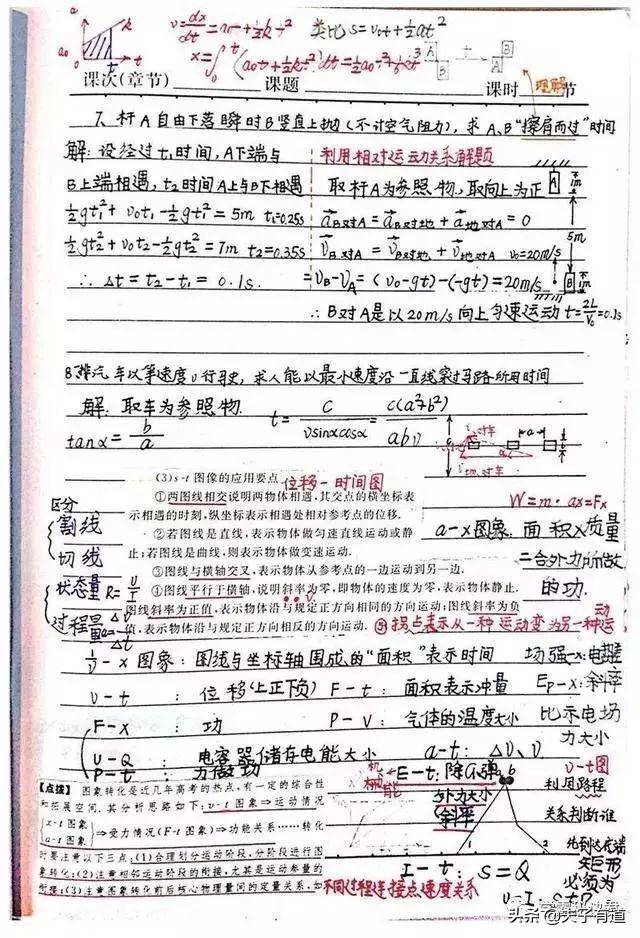 v=dx/dt=a₀t+½kt² 类比 s=v₀t+½at²
x=∫₀ᵗ(a₀t+½kt²)dt=½a₀t²+⅙kt³
课次(章节) 课题 课时 理解 节
7、杆A自由下落瞬时B竖直上抛(不计空气阻力),求A、B"擦肩而过"时间
解:设经过t₁时间,A下端与
B上端相遇,t₂时间A上与B下相遇
½gt₁²+v₀t₁-½gt₁²=5m t₁=0.25s
½gt₂²+v₀t₂-½gt₂²=7m t₂=0.35s
∴Δt=t₂-t₁=0.1s
利用相对运动关系解题
取杆A为参照物,取向上为正
a B对A=a B对地+a 地对A=0
v B对A=v B对地+v 地对A v₀=20m/s
=v_B-v_A=(v₀-gt)-(-gt)=20m/s
∴B对A是以20m/s向上匀速运动 t=2L/v₀=0.1s
A 1m
5m
B 1m
汽车以等速度v行驶,求人能以最小速度沿一直线穿过马路所用时间
解:取车为参照物.
tanα=b/a
t=c/(v sinα cosα)=c(a²+b²)/(abv)
(3)s-t图像的应用要点 位移-时间图
①两图线相交说明两物体相遇,其交点的横坐标表
示相遇的时刻,纵坐标表示相遇处相对参考点的位移.
②若图线是直线,表示物体做匀速直线运动或静
止;若图线是曲线,则表示物体做变速运动.
③图线与横轴交叉,表示物体从参考点的一边运动到另一边.
④图线平行于横轴,说明斜率为零,即物体的速度为零,表示物体静止.
图线斜率为正值,表示物体沿与规定正方向相同的方向运动;图线斜率为负
值,表示物体沿与规定正方向相反的方向运动.
⑤拐点表示从一种运动变为另一种运动
区分
割线
切线
状态量 R=U/I
过程量
W=m·ax=Fx
a-x图象:面积×质量
=合外力所做
的功.
1/v-x图象:图线与坐标轴围成的"面积"表示时间 场强-x:电势差
v-t:位移(上正下负) F-t:面积表示冲量 Ep-x:斜率
F-x:功 P-V:气体的温度大小 比示电场
力大小
U-Q:电容器储存电能大小 a-t:Δv、v
P-t:力做功
【点拨】 图象转化是近几年高考的热点,有一定的综合性
和拓展空间.其分析思路如下:v-t图象⇒运动情况
x-t图象
a-t图象
⇒受力情况(F-t图象)⇒功能关系……转化
时要注意以下三点:(1)合理划分运动阶段,分阶段进行图
象转化;(2)注意相邻运动阶段的衔接,尤其是运动参量的
衔接;(3)注意图象转化前后核心物理量间的定量关系,如
机械能
E-t:除G、弹
外力大小
斜率
I-t:S=Q
不同过程连接点速度关系
v-t图
利用路程
关系判断谁
先到达底端
矩形
必须为
头条@夫子有道